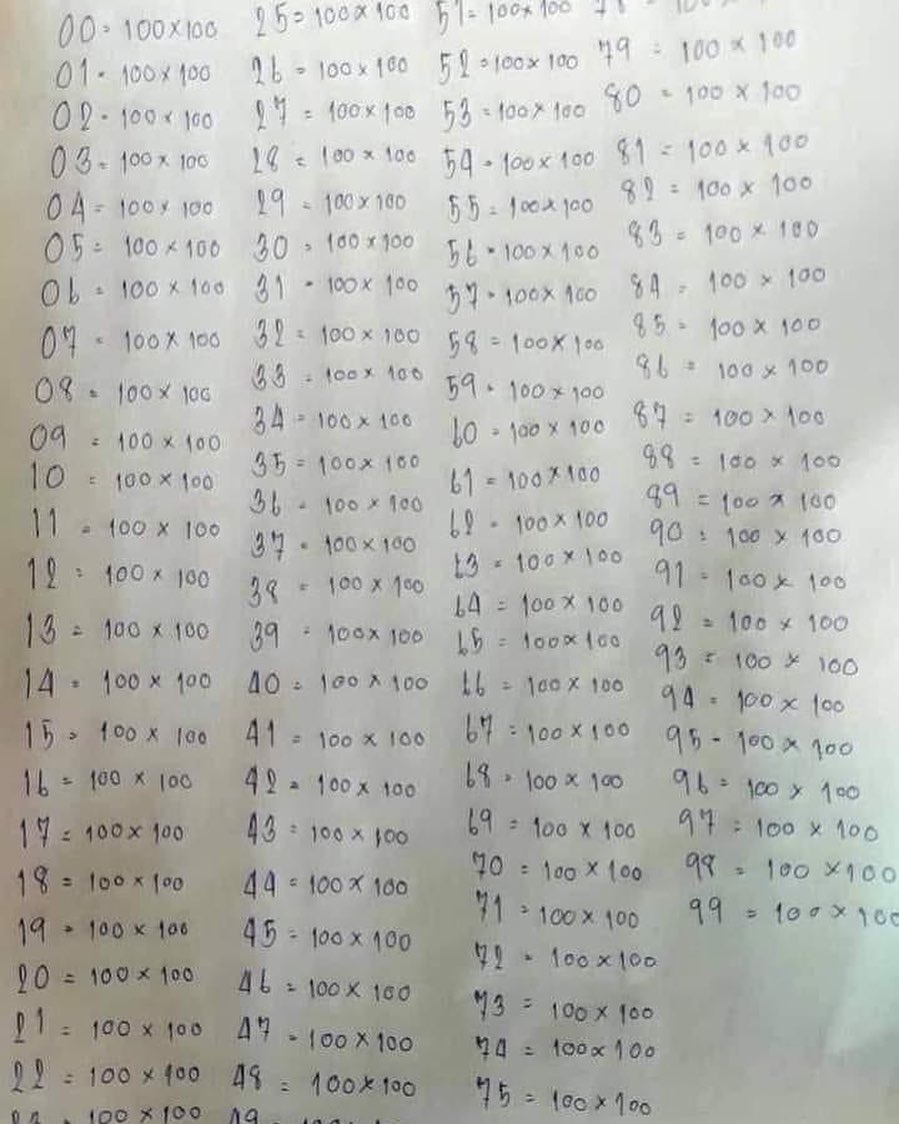 00 = 100 × 100
01 = 100 × 100
02 = 100 × 100
03 = 100 × 100
04 = 100 × 100
05 = 100 × 100
06 = 100 × 100
07 = 100 × 100
08 = 100 × 100
09 = 100 × 100
10 = 100 × 100
11 = 100 × 100
12 = 100 × 100
13 = 100 × 100
14 = 100 × 100
15 = 100 × 100
16 = 100 × 100
17 = 100 × 100
18 = 100 × 100
19 = 100 × 100
20 = 100 × 100
21 = 100 × 100
22 = 100 × 100
100 × 100
25 = 100 × 100
26 = 100 × 100
27 = 100 × 100
28 = 100 × 100
29 = 100 × 100
30 = 100 × 100
31 = 100 × 100
32 = 100 × 100
33 = 100 × 100
34 = 100 × 100
35 = 100 × 100
36 = 100 × 100
37 = 100 × 100
38 = 100 × 100
39 = 100 × 100
40 = 100 × 100
41 = 100 × 100
42 = 100 × 100
43 = 100 × 100
44 = 100 × 100
45 = 100 × 100
46 = 100 × 100
47 = 100 × 100
48 = 100 × 100
51 = 100 × 100
52 = 100 × 100
53 = 100 × 100
54 = 100 × 100
55 = 100 × 100
56 = 100 × 100
57 = 100 × 100
58 = 100 × 100
59 = 100 × 100
60 = 100 × 100
61 = 100 × 100
62 = 100 × 100
63 = 100 × 100
64 = 100 × 100
65 = 100 × 100
66 = 100 × 100
67 = 100 × 100
68 = 100 × 100
69 = 100 × 100
70 = 100 × 100
71 = 100 × 100
72 = 100 × 100
73 = 100 × 100
74 = 100 × 100
75 = 100 × 100
79 = 100 × 100
80 = 100 × 100
81 = 100 × 100
82 = 100 × 100
83 = 100 × 100
84 = 100 × 100
85 = 100 × 100
86 = 100 × 100
87 = 100 × 100
88 = 100 × 100
89 = 100 × 100
90 = 100 × 100
91 = 100 × 100
92 = 100 × 100
93 = 100 × 100
94 = 100 × 100
95 = 100 × 100
96 = 100 × 100
97 = 100 × 100
98 = 100 × 100
99 = 100 × 100